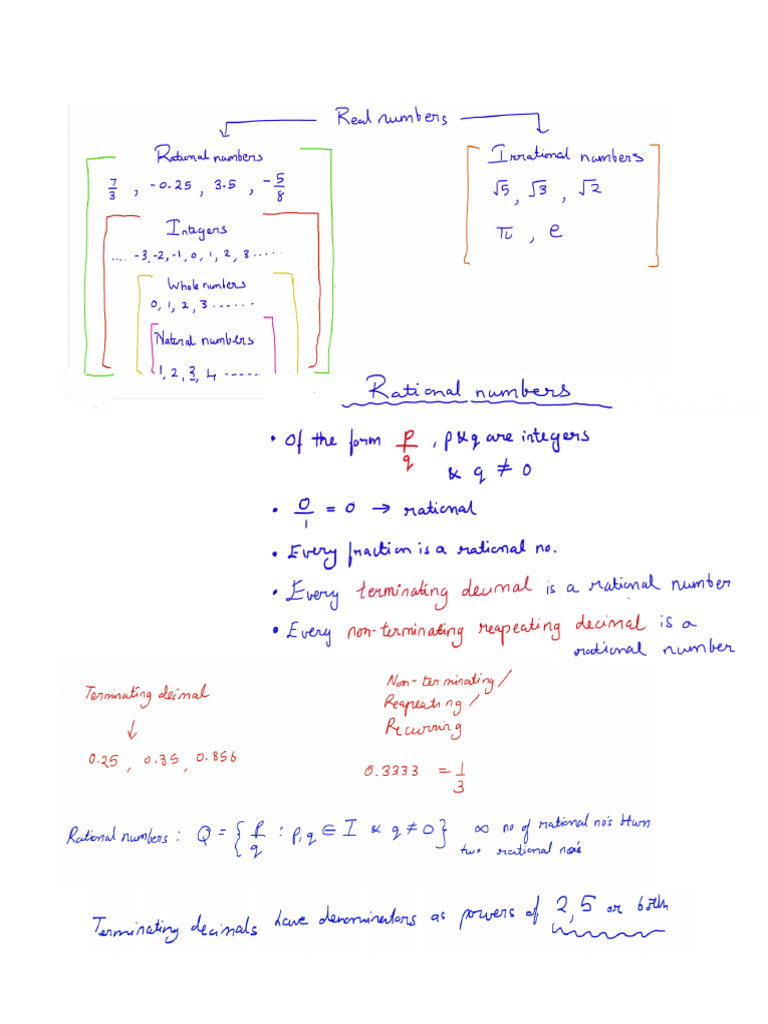 Real numbers
Rational numbers
7/3 , -0.25 , 3.5 , -5/8
Integers
.... -3, -2, -1, 0, 1, 2, 3 .....
Whole numbers
0, 1, 2, 3 ......
Natural numbers
1, 2, 3, 4 ......
Irrational numbers
√5 , √3 , √2
π , e
Rational numbers
• Of the form p/q , p & q are integers
& q ≠ 0
• 0/1 = 0 → rational
• Every fraction is a rational no.
• Every terminating decimal is a rational number
• Every non-terminating reapeating decimal is a
rational number
Terminating decimal
↓
0.25 , 0.35 , 0.856
Non-terminating /
Reapeating /
Recurring
0.3333 = 1/3
Rational numbers : Q = { p/q : p, q ∈ I & q ≠ 0 } ∞ no of rational no's btwn
two rational no's
Terminating decimals have denominators as powers of 2, 5 or both